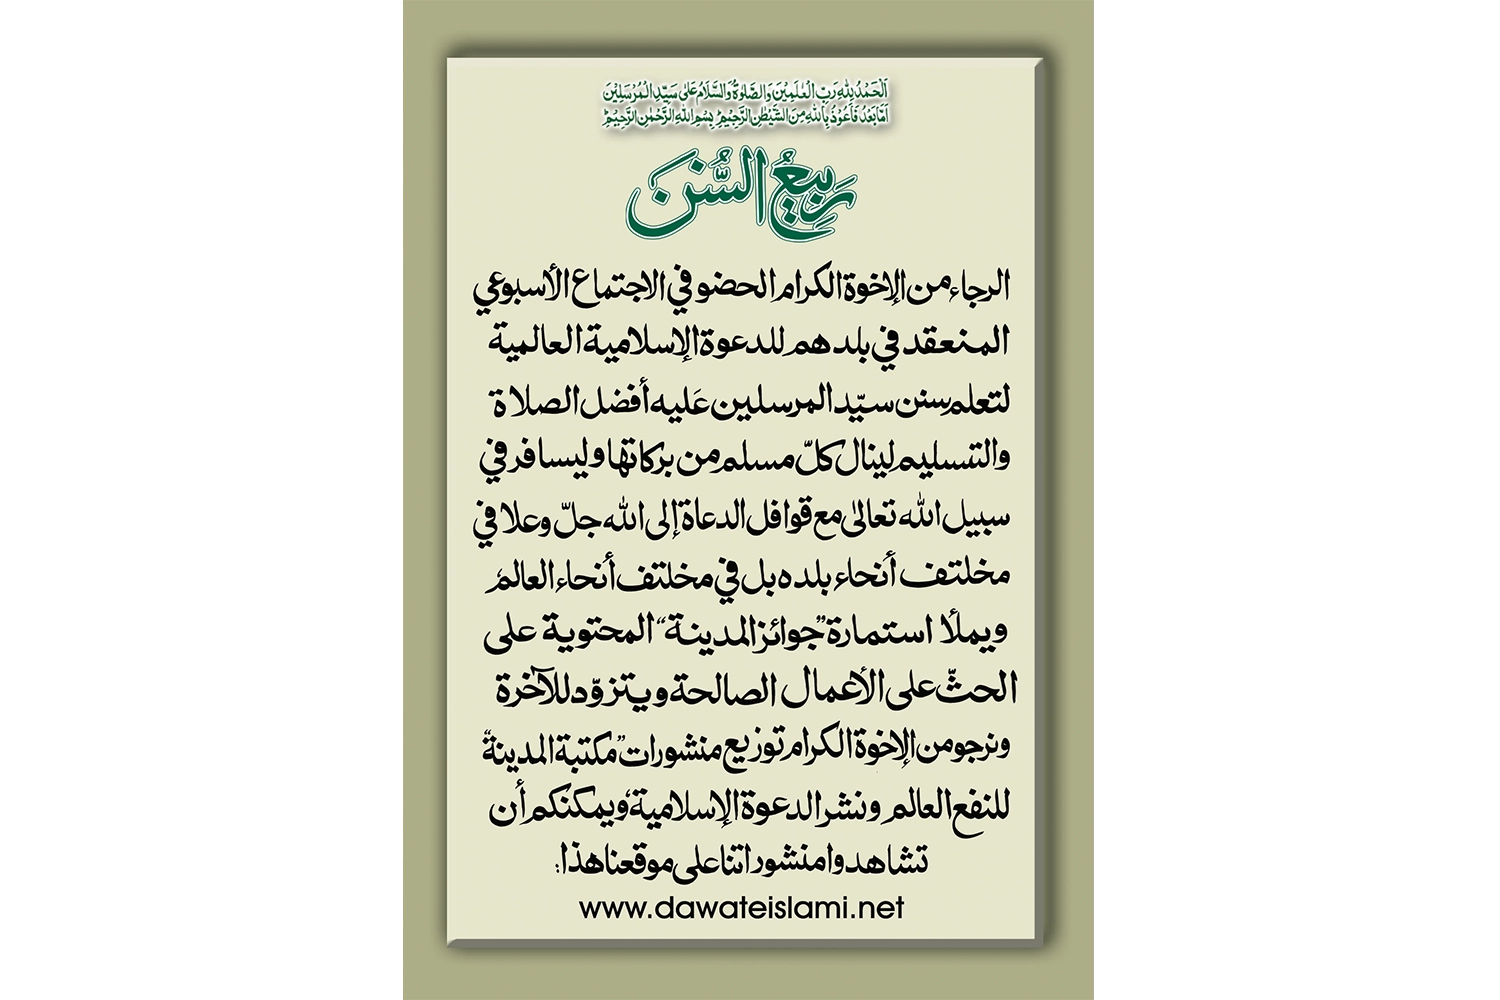 اَلْحَمْدُ لِلّٰهِ رَبِّ الْعٰلَمِيْنَ وَالصَّلٰوةُ وَالسَّلَامُ عَلٰى سَيِّدِ الْمُرْسَلِيْنَ
اَمَّا بَعْدُ فَاَعُوْذُ بِاللّٰهِ مِنَ الشَّيْطٰنِ الرَّجِيْمِ ؕ بِسْمِ اللّٰهِ الرَّحْمٰنِ الرَّحِيْمِ ؕ
رَبِيعُ السُّنَنَ
الرجاء من الإخوة الكرام الحضو في الاجتماع الأسبوعي
المنعقد في بلدهم للدعوة الإسلامية العالمية
لتعلم سنن سيّد المرسلين عَليه أفضل الصلاة
والتسليم لِينال كلّ مسلم من بركاتها وليسافر في
سبيل الله تعالىٰ مع قوافل الدعاة إلى الله جلّ وعلا في
مخلتف أنحاء بلده بل في مخلتف أنحاء العالم
ويملأ استمارة "جوائز المدينة" المحتوية على
الحثّ على الأعمال الصالحة ويتزوّد للآخرة
ونرجو من الإخوة الكرام توزيع منشورات "مكتبة المدينة"
للنفع العالم ونشر الدعوة الإسلامية، ويمكنكم أن
تشاهدوا منشوراتنا على موقعنا هذا:
www.dawateislami.net